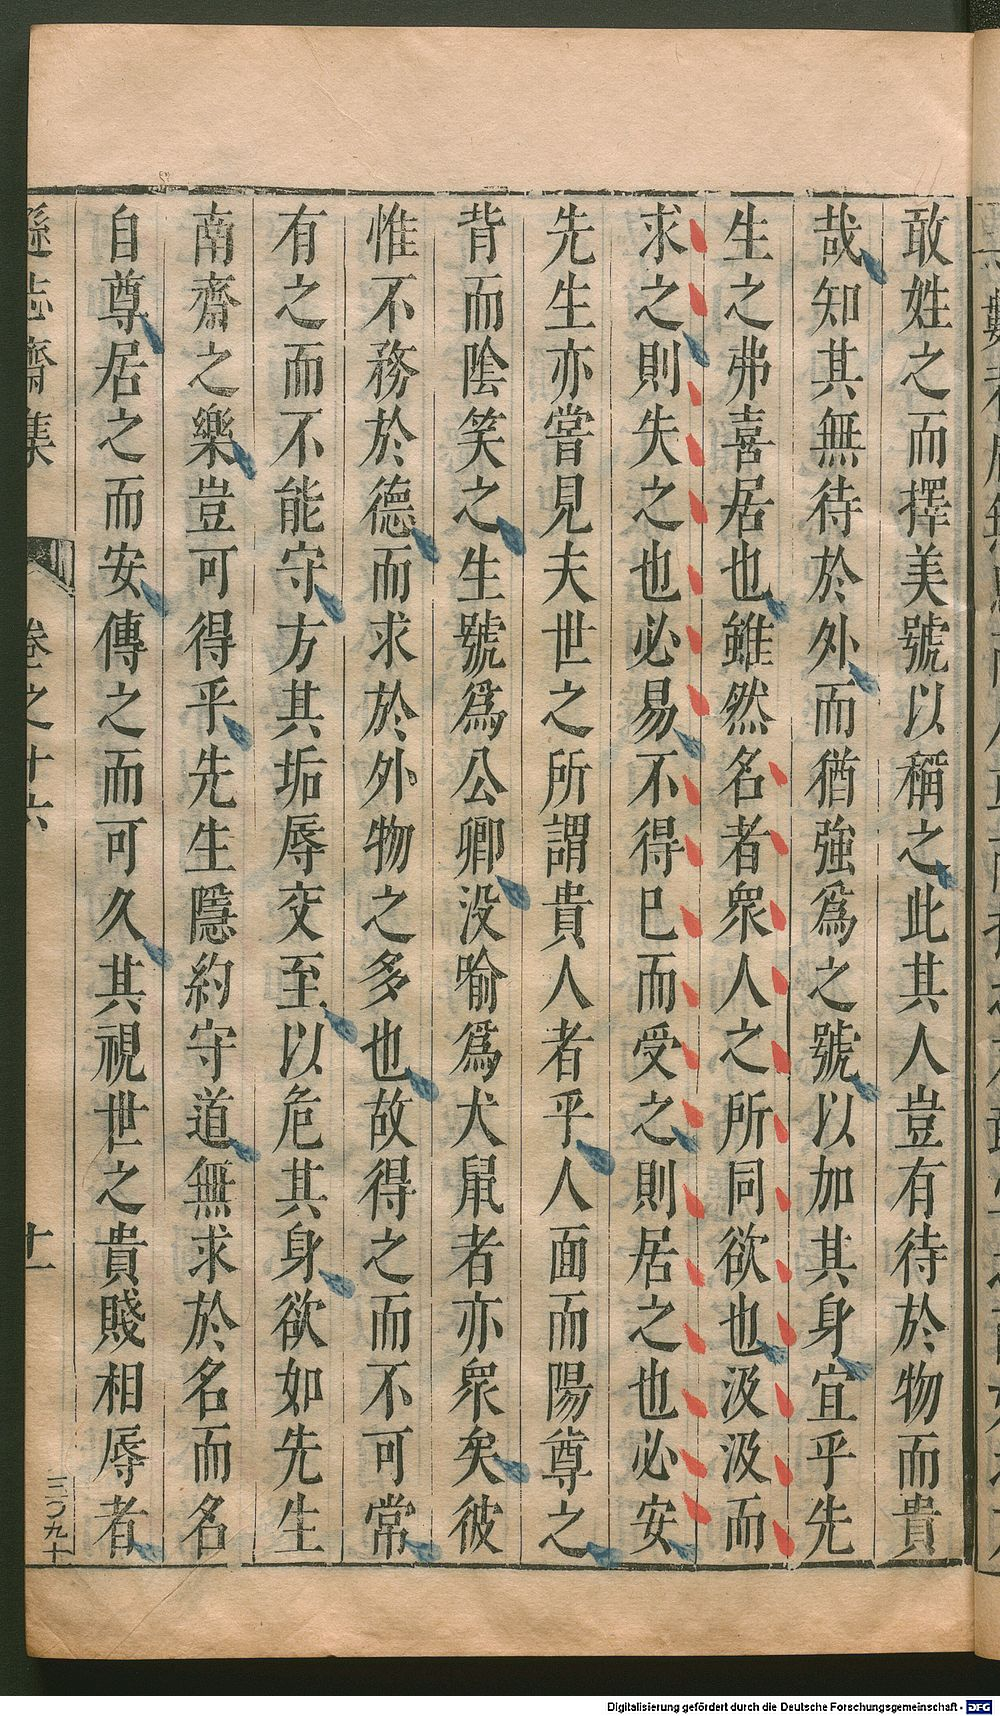 敢姓之而擇美號以稱之此其人豈有待於物而貴
哉知其無待於外而猶強爲之號以加其身宜乎先
生之弗喜居也雖然名者衆人之所同欲也汲汲而
求之則失之也必易不得已而受之則居之也必安
先生亦嘗見夫世之所謂貴人者乎人面而陽尊之
背而陰笑之生號爲公卿没喻爲犬鼠者亦衆矣彼
惟不務於德而求於外物之多也故得之而不可常
有之而不能守方其垢辱交至以危其身欲如先生
南齋之樂豈可得乎先生隱約守道無求於名而名
自尊居之而安傳之而可久其視世之貴賤相辱者
遜志齋集
卷之十六
十一
Digitalisierung gefördert durch die Deutsche Forschungsgemeinschaft - DFG